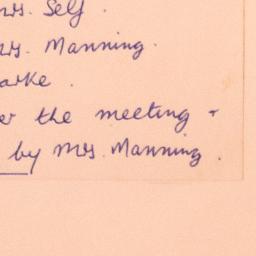 Mrs. Self.
Mrs. Manning.
arke.
er the meeting +
by Mrs. Manning.